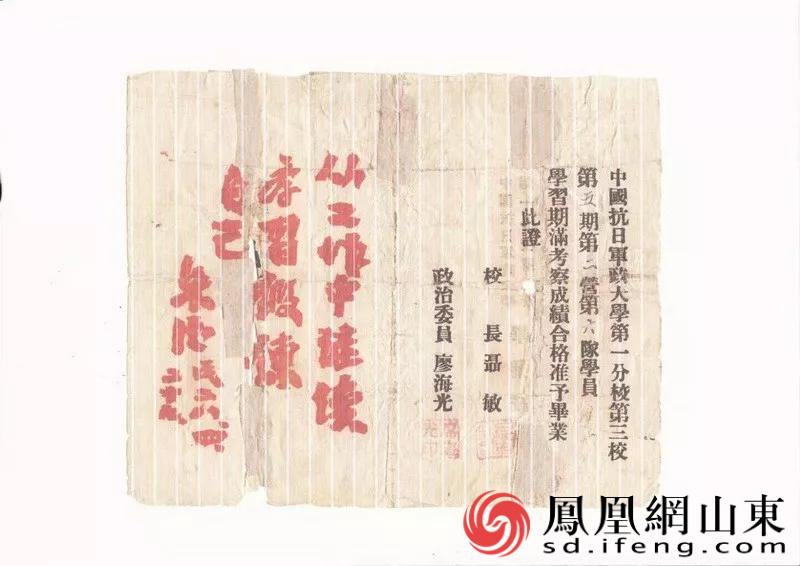 中國抗日軍政大學第一分校第三校
第五期第二營第六隊學員
學習期滿考察成績合格准予畢業
此證
校長聶敏
政治委員廖海光
從工作中繼續
學習鍛鍊
自己
鳳凰網山東
sd.ifeng.com